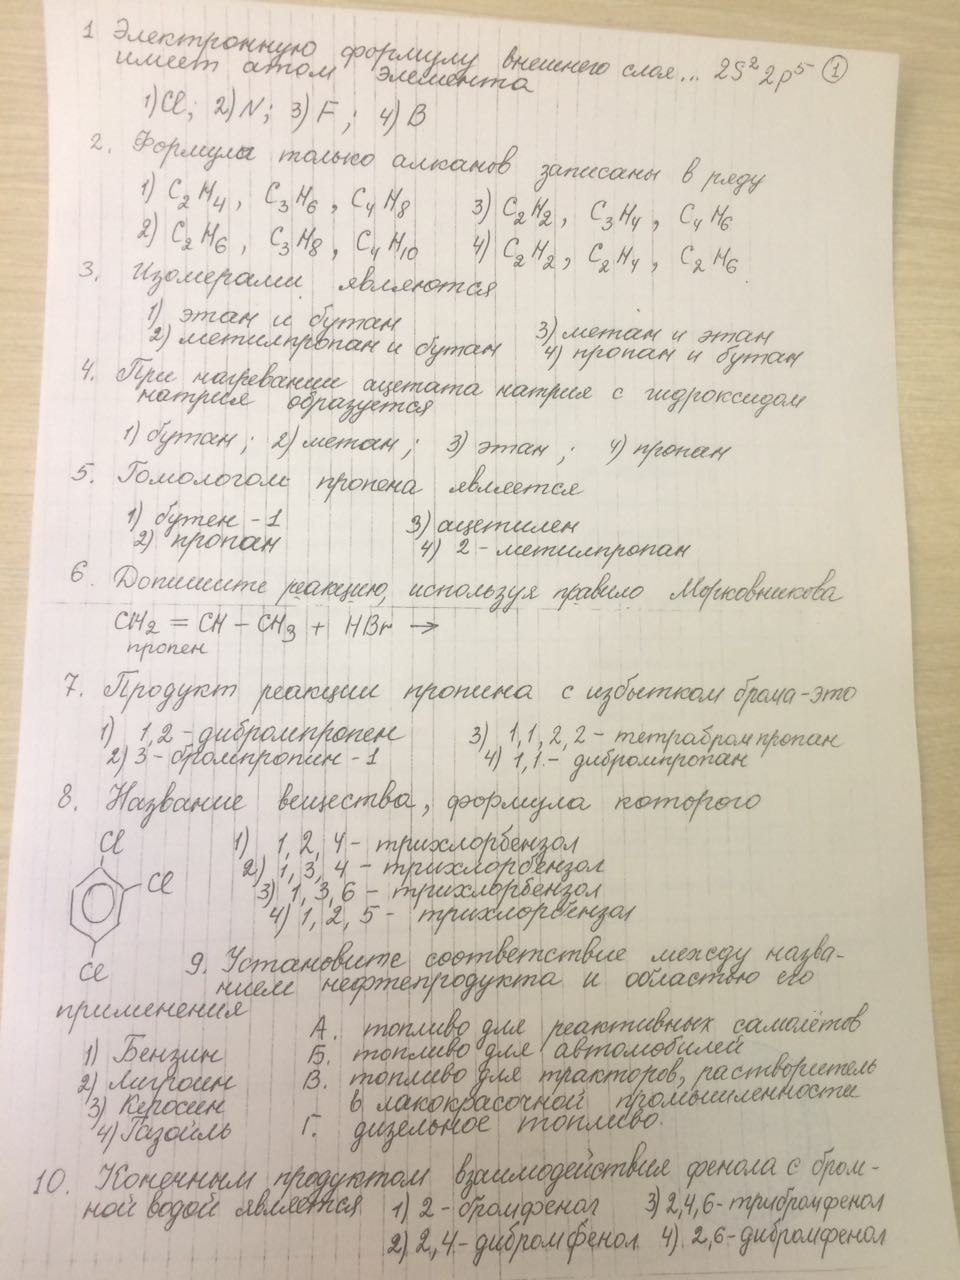 1 Электронную формулу внешнего слоя... 2S² 2p⁵ ①
имеет атом элемента
1) Cl; 2) N; 3) F; 4) B
2. Формулы только алканов записаны в ряду
1) C₂H₄, C₃H₆, C₄H₈ 3) C₂H₂, C₃H₄, C₄H₆
2) C₂H₆, C₃H₈, C₄H₁₀ 4) C₂H₂, C₂H₄, C₂H₆
3. Изомерами являются
1) этан и бутан 3) метан и этан
2) метилпропан и бутан 4) пропан и бутан
4. При нагревании ацетата натрия с гидроксидом
натрия образуется
1) бутан; 2) метан; 3) этан; 4) пропан
5. Гомологом пропена является
1) бутен-1 3) ацетилен
2) пропан 4) 2-метилпропан
6. Допишите реакцию, используя правило Морковникова
CH₂ = CH - CH₃ + HBr →
пропен
7. Продукт реакции пропина с избытком брома-это
1) 1,2-дибромпропен 3) 1,1,2,2-тетрабромпропан
2) 3-бромпропин-1 4) 1,1-дибромпропан
8. Название вещества, формула которого
Cl 1) 1,2,4-трихлорбензол
Cl 2) 1,3,4-трихлорбензол
3) 1,3,6-трихлорбензол
4) 1,2,5-трихлорбензол
Cl 9. Установите соответствие между назва-
нием нефтепродукта и областью его
применения
А. топливо для реактивных самолётов
1) Бензин Б. топливо для автомобилей
2) Лигроин В. топливо для тракторов, растворитель
3) Керосин в лакокрасочной промышленности
4) Газойль Г. дизельное топливо.
10. Конечным продуктом взаимодействия фенола с бром-
ной водой является 1) 2-бромфенол 3) 2,4,6-трибромфенол
2) 2,4-дибромфенол 4) 2,6-дибромфенол